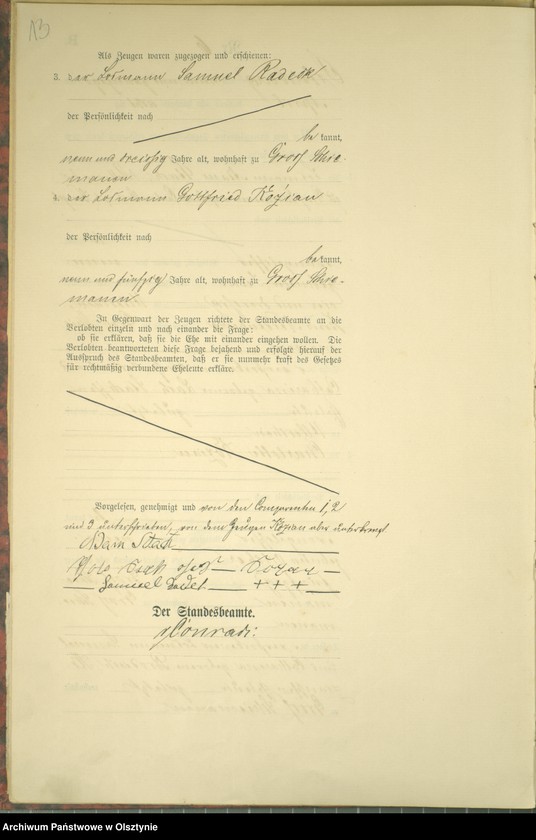 13
Als Zeugen waren zugezogen und erschienen:
3. der Losmann Samuel Radek
der Persönlichkeit nach
be kannt,
neun und dreißig Jahre alt, wohnhaft zu Groß Schie-
manen
4. der Losmann Gottfried Kozian
der Persönlichkeit nach
be kannt,
neun und fünfzig Jahre alt, wohnhaft zu Groß Schie-
manen.
In Gegenwart der Zeugen richtete der Standesbeamte an die
Verlobten einzeln und nach einander die Frage:
ob sie erklären, daß sie die Ehe mit einander eingehen wollen. Die
Verlobten beantworteten diese Frage bejahend und erfolgte hierauf der
Ausspruch des Standesbeamten, daß er sie nunmehr kraft des Gesetzes
für rechtmäßig verbundene Eheleute erkläre.
Vorgelesen, genehmigt und von den Comparenten 1, 2
und 3 unterschrieben, von dem Zeugen Kozian aber unterkreuzt
Adam
geb
Samuel Radek +++
Der Standesbeamte.
Conradi.
Archiwum Państwowe w Olsztynie